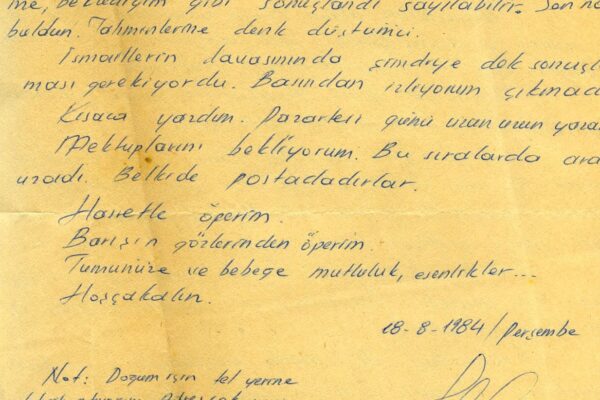 me, beklediğim gibi sonuçlandı sayılabilir. Son no
buldun. Tahminlerime denk düştü
İsmaillerin davasınında şimdiye dek sonuçl
ması gerekiyordu. Basından izliyorum çıkmad
Kısaca yazdım. Pazartesi günü uzun uzun yazar
Mektuplarını bekliyorum. Bu sıralarda ara
uzadı. Belkide postadadırlar.
Hasretle öperim.
Barışın gözlerinden öperim.
Tümünüze ve bebeğe mutluluk, esenlikler...
Hoşçakalın.
18-8-1984/Perşembe
Not: Doğum için tel yerine